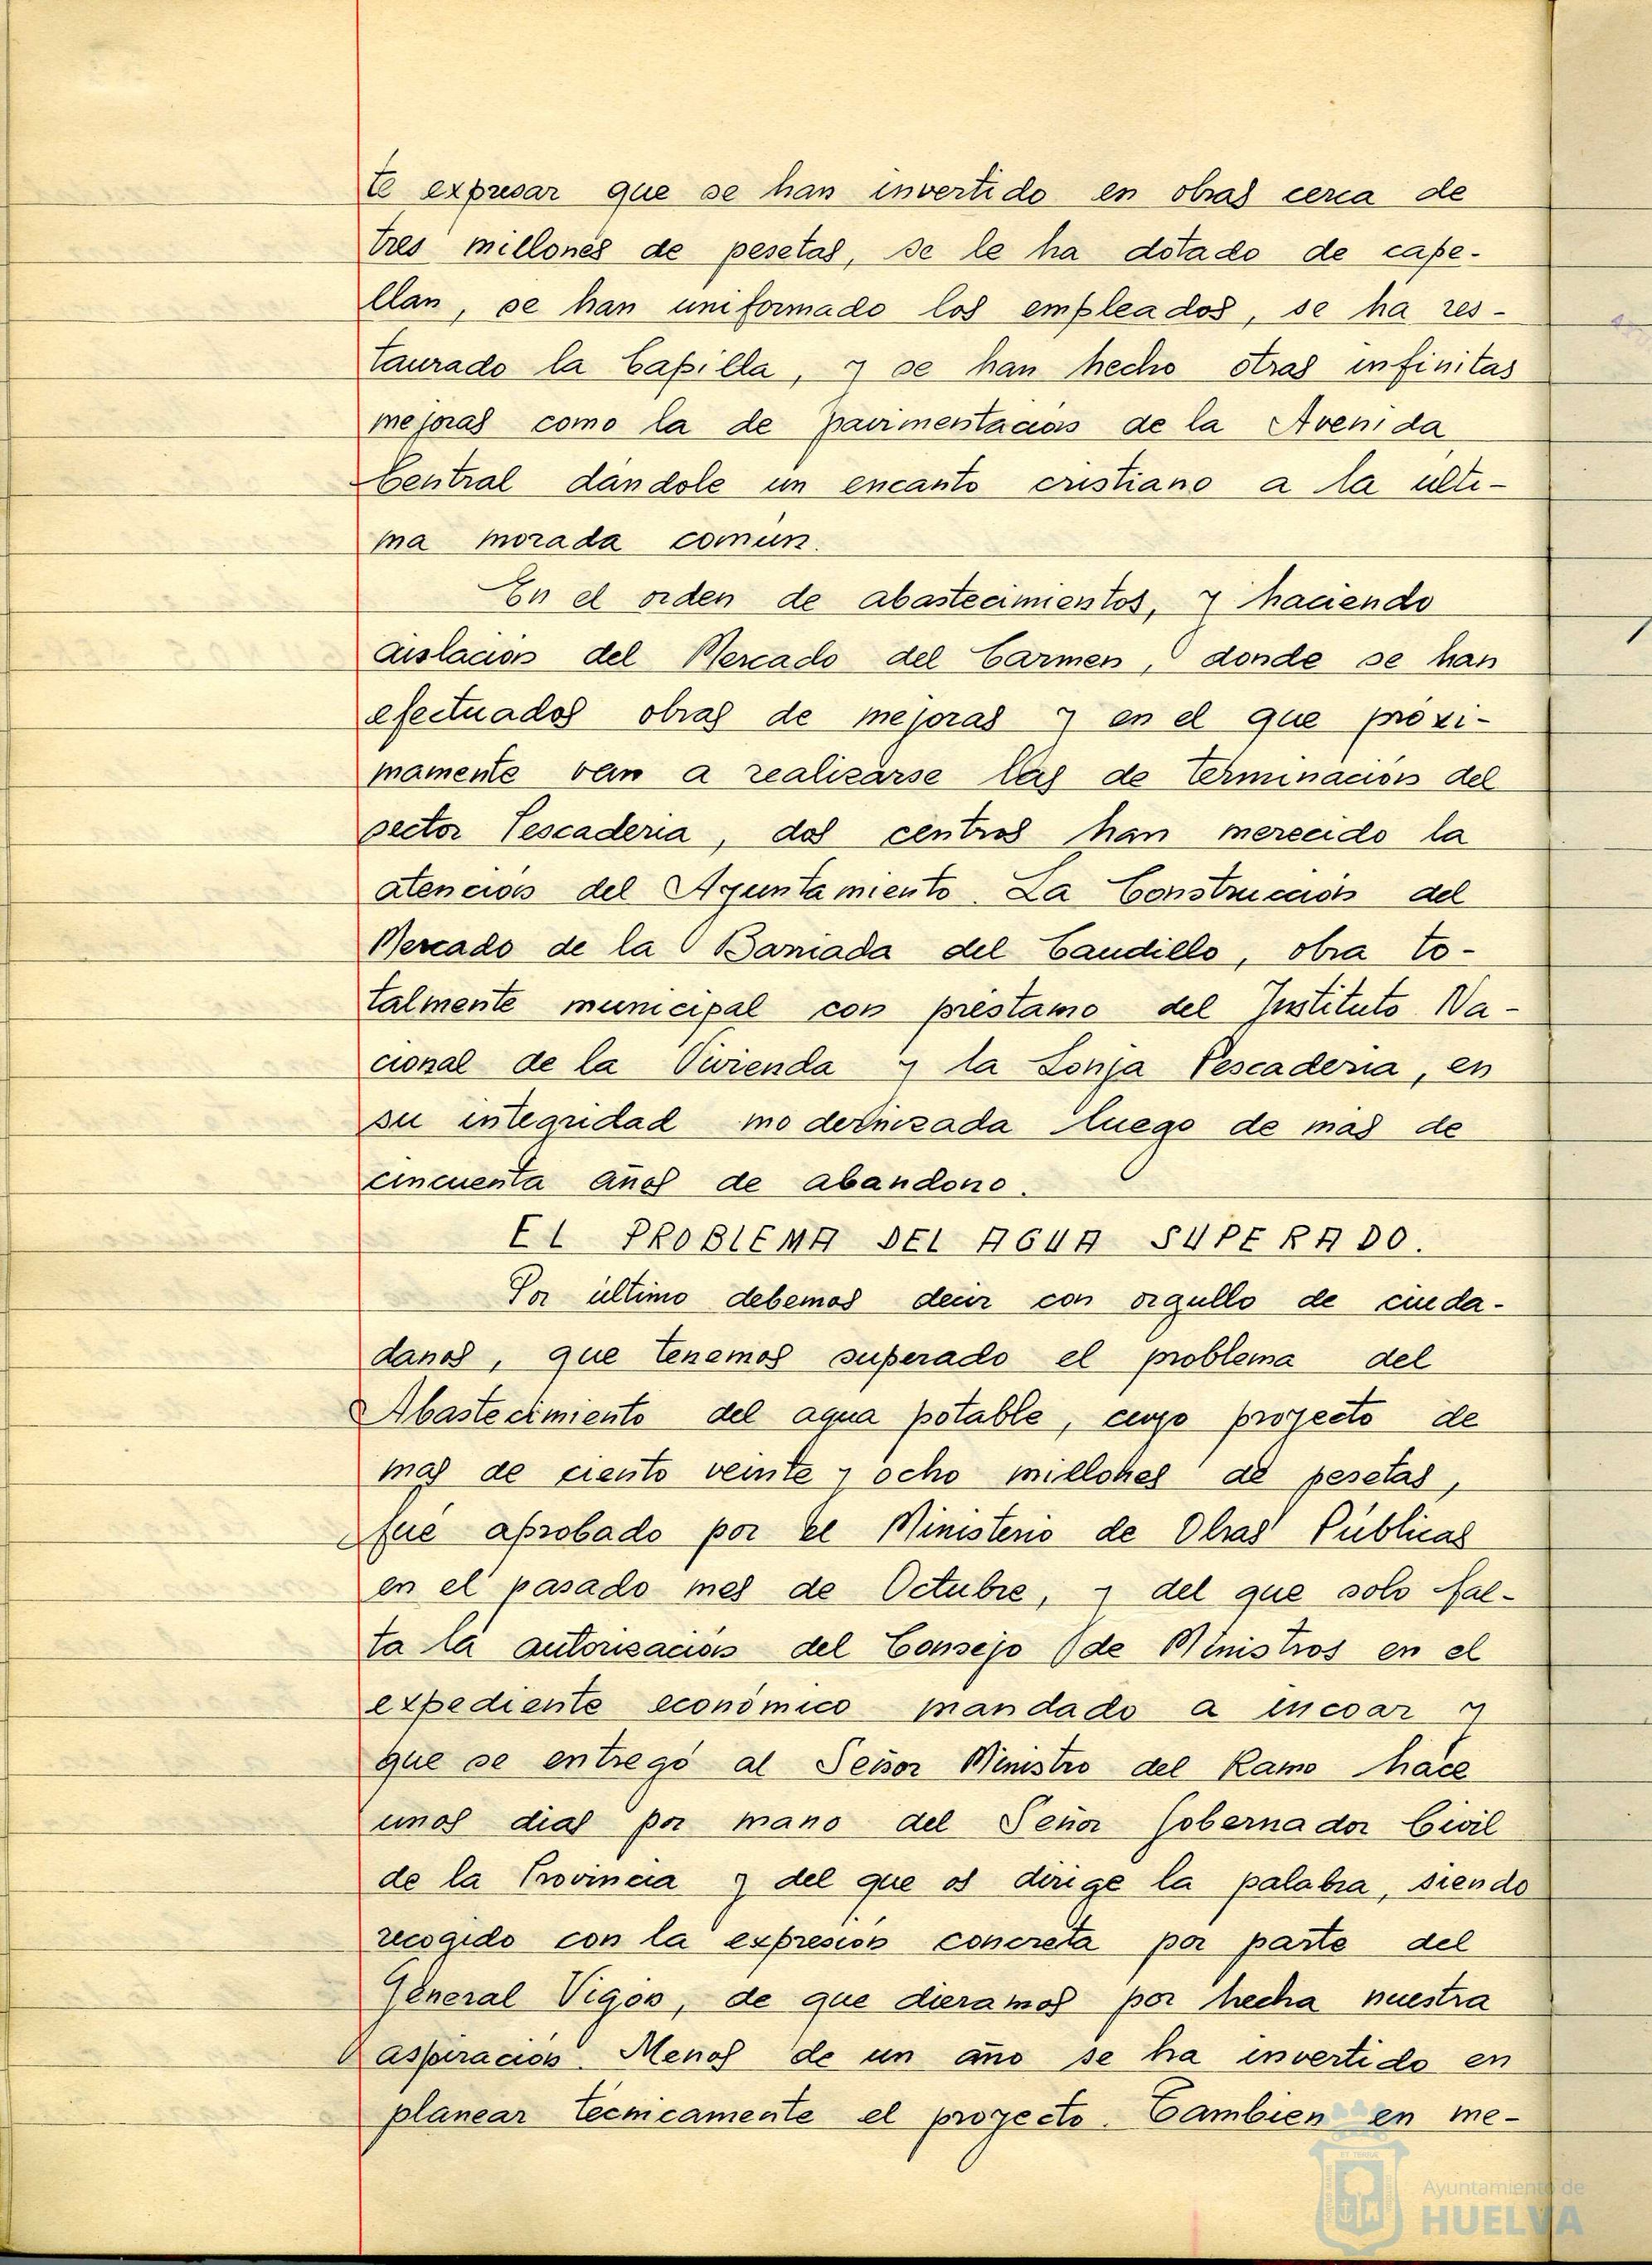 te expresar que se han invertido en obras cerca de
tres millones de pesetas, se le ha dotado de cape-
llan, se han uniformado los empleados, se ha res-
taurado la Capilla, y se han hecho otras infinitas
mejoras como la de pavimentacion de la Avenida
Central dándole un encanto cristiano a la ulti-
ma morada comun.
En el orden de abastecimientos, y haciendo
aislacion del Mercado del Carmen, donde se han
efectuados obras de mejoras y en el que proxi-
mamente van a realizarse las de terminacion del
sector Pescaderia, dos centros han merecido la
atencion del Ayuntamiento. La Construccion del
Mercado de la Barriada del Caudillo, obra to-
talmente municipal con préstamo del Instituto Na-
cional de la Vivienda y la Lonja Pescaderia, en
su integridad modernizada luego de mas de
cincuenta años de abandono.
El PROBLEMA DEL AGUA SUPERADO.
Por ultimo debemos decir con orgullo de ciuda-
danos, que tenemos superado el problema del
Abastecimiento del agua potable, cuyo proyecto de
mas de ciento veinte y ocho millones de pesetas,
fué aprobado por el Ministerio de Obras Públicas
en el pasado mes de Octubre, y del que solo fal-
ta la autorizacion del Consejo de Ministros en el
expediente económico mandado a incoar y
que se entregó al Señor Ministro del Ramo hace
unos dias por mano del Señor Gobernador Civil
de la Provincia y del que os dirige la palabra, siendo
recogido con la expresion concreta por parte del
General Vigon, de que dieramos por hecha nuestra
aspiracion. Menos de un año se ha invertido en
planear técnicamente el proyecto. Cambien en me-
Ayuntamiento de
HUELVA